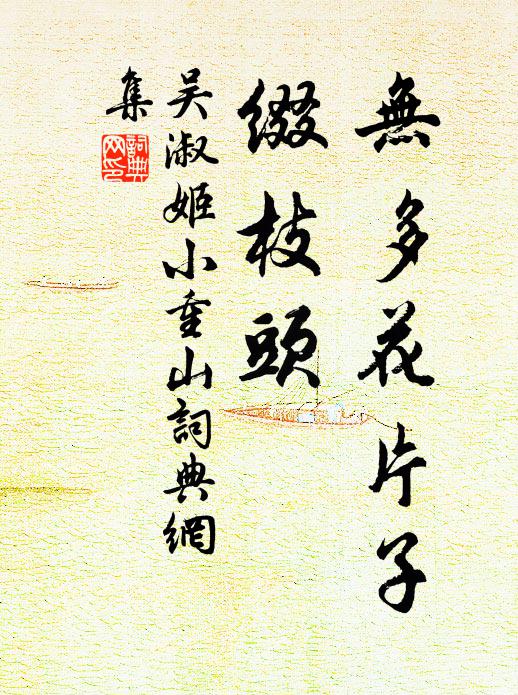 無多花片子
綴枝頭
吳淑姬小重山詞典網
集
詞典網印